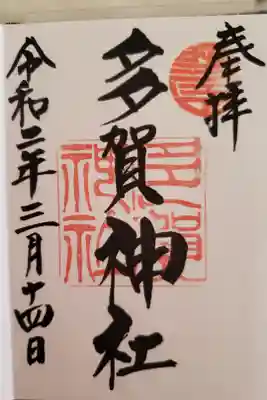 奉拝
多賀神社
令和二年三月十四日
多賀神社